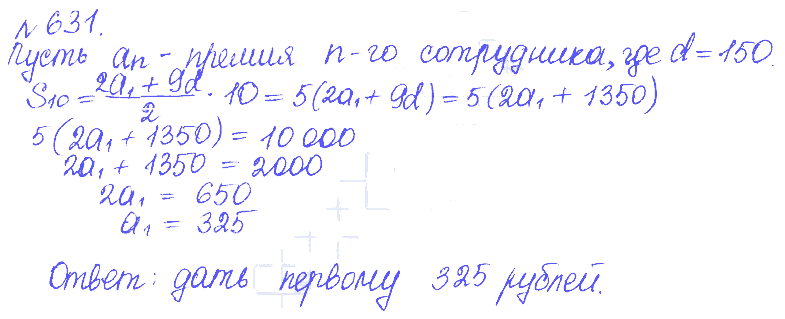 № 631.
Пусть aₙ - премия n-го сотрудника, где d = 150.
S₁₀ = (2a₁ + 9d)/2 · 10 = 5(2a₁ + 9d) = 5(2a₁ + 1350)
5(2a₁ + 1350) = 10 000
2a₁ + 1350 = 2000
2a₁ = 650
a₁ = 325
Ответ: дать первому 325 рублей.